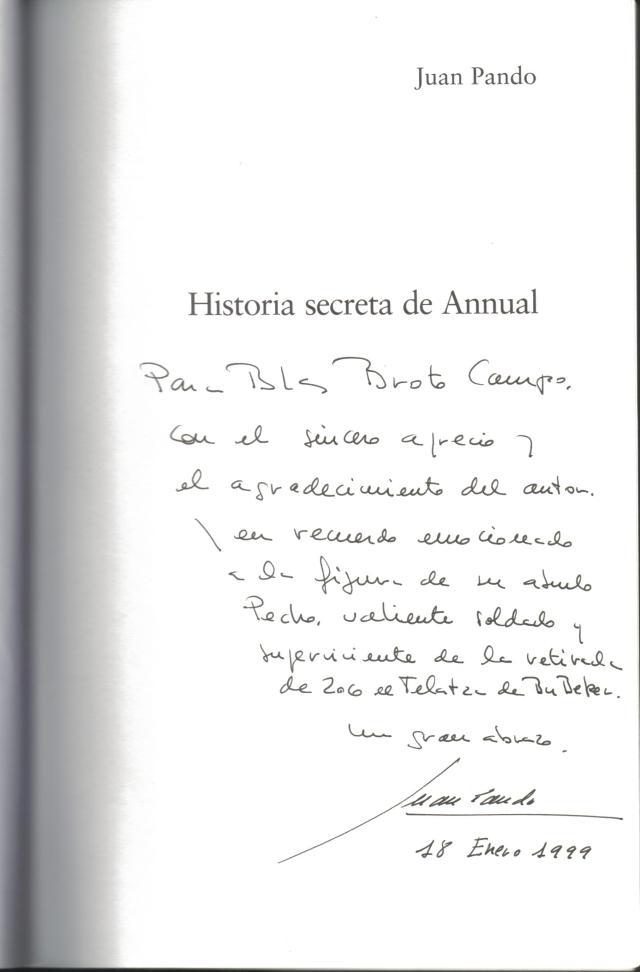 Juan Pando
Historia secreta de Annual
Para Blas Broto Campo,
con el sincero aprecio y
el agradecimiento del autor.
Y en recuerdo emocionado
a la figura de su abuelo
Pedro, valiente soldado y
superviviente de la retirada
de Zoco el Telatza de Bu Beker.
Un gran abrazo.
Juan Pando
18 Enero 1999